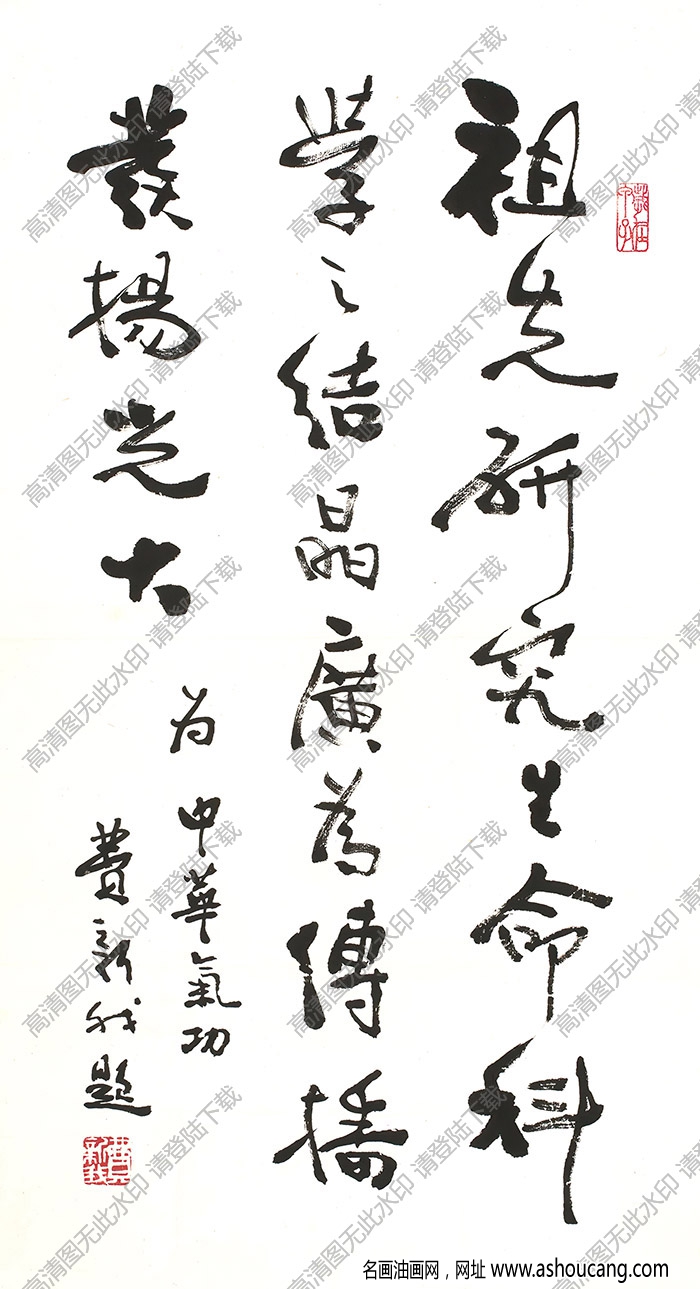 祖先研究生命科
學之結晶廣為傳播
發揚光大
为中華氣功
費新我題
費新我
高清图无此水印 请登陆下载
名画油画网，网址 www.ashoucang.com